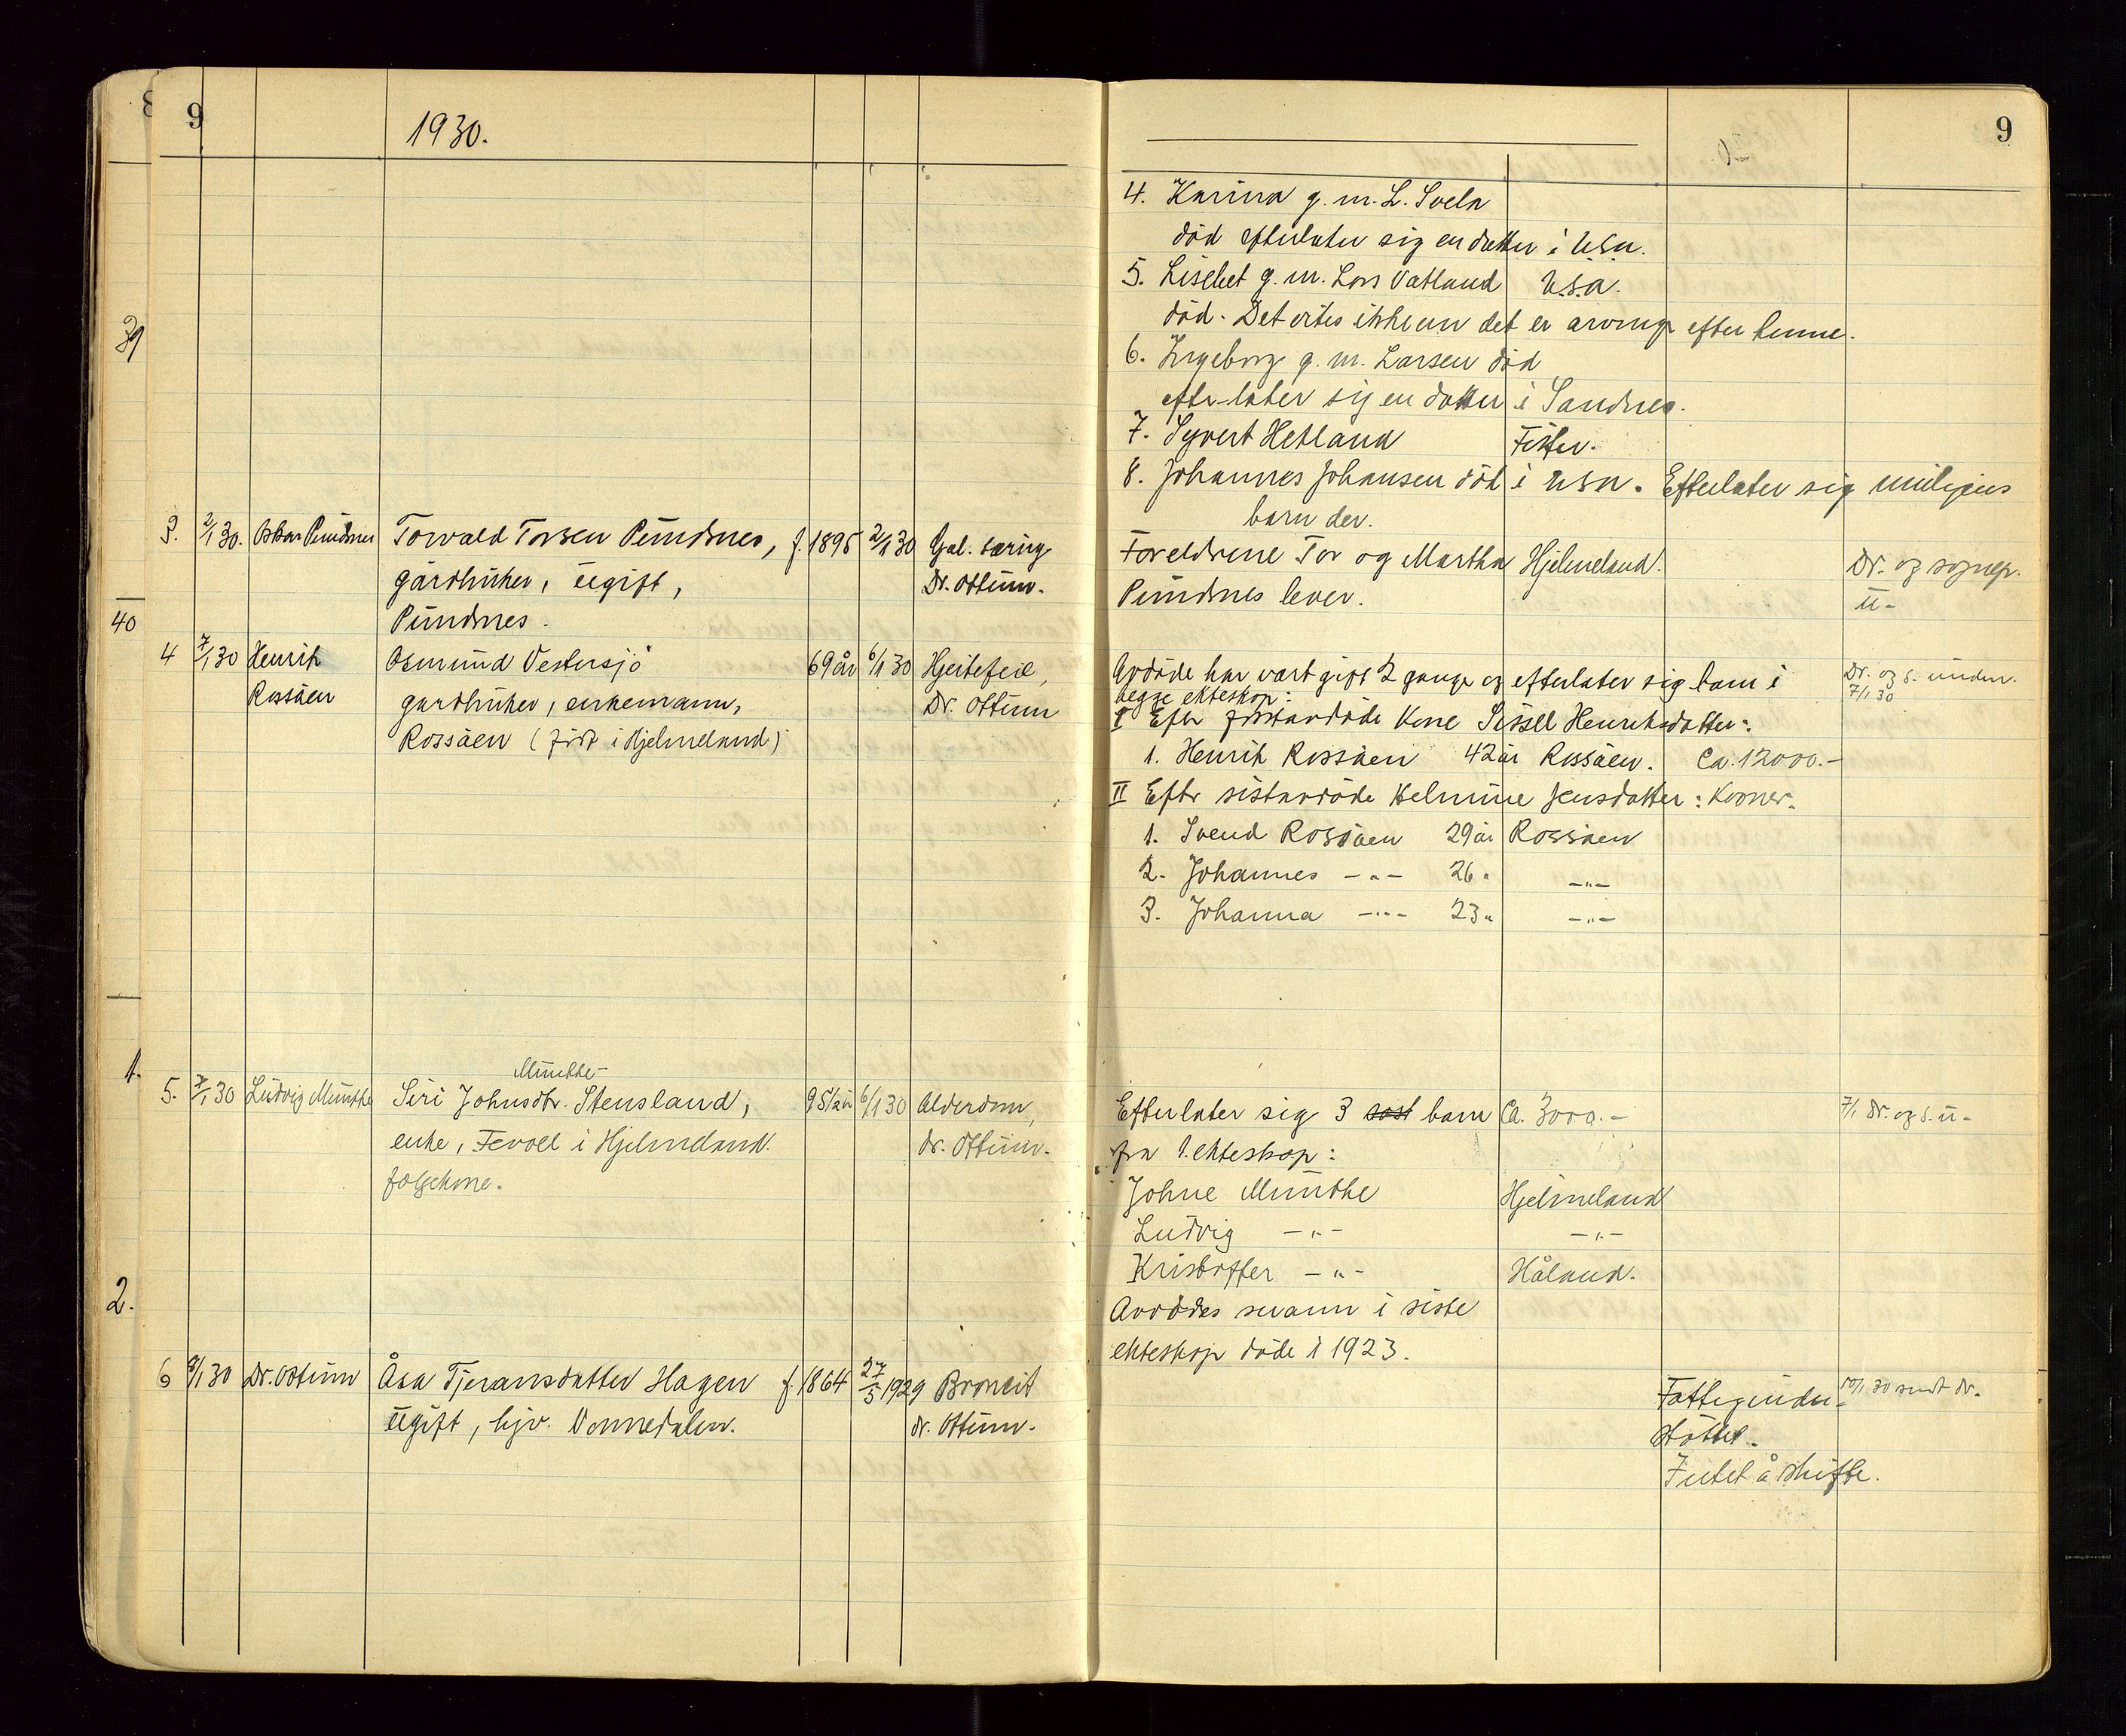 9
1930.
39
3. 2/1 30. Oskar Pundsnes Torvald Torsen Pundsnes, f. 1895 2/1 30 Gal. tæring
gårdbruker, ugift, Dr. Ottum.
Pundsnes.
40
4 7/1 30 Henrik Osmund Vestersjø 69 år 6/1 30 Hjertefeil,
Rossåen gardbruker, enkemann, Dr. Ottum
Rossåen (født i Hjelmeland)
1.
Munthe
5. 7/1 30 Ludvig Munthe Siri Johnsdtr. Stensland, 95 1/2 år 6/1 30 Alderdom,
enke, Fevoll i Hjelmeland. dr. Ottum.
folgekone.
2.
6 8/1 30 Dr. Ottum Åsa Tjeransdatter Hagen f. 1864 27/5 1929 Broncit
ugift, hjv. Vormedalen. dr. Ottum.
9
4. Karina g. m. L. Svela
død efterlater sig en datter i U.S.A.
5. Lisebet g. m. Lars Vatland U.S.A.
død. Det vites ikke um det er arvinger efter henne.
6. Ingeborg g. m. Larsen død
efterlater sig en datter i Sandnes.
7. Syvert Hetland Fister.
8. Johannes Johansen død i USA. Efterlater sig muligens
barn der.
Foreldrene Tor og Martha Hjelmeland. Dr. og sognep.
Pundsnes lever. u-
Avdøde har vært gift 2 ganger og efterlater sig barn i Dr. og s. under.
begge ekteskap: 7/1 30
I Efter førstavdøde kone Sissel Henriksdatter:
1. Henrik Rossåen 42 år Rossåen. Ca. 12000.-
II Eftr sistavdøde Helmine Jensdatter: Kroner.
1. Svend Rossåen 29 år Rossåen
2. Johannes -"- 26 " -"-
3. Johanna -"- 23 " -"-
Efterlater sig 3 barn Ca. 3000.- 7/1 dr. og s. u-
fra 1. ekteskap:
Johne Munthe Hjelmeland
Ludvig -"- -"-
Kristoffer -"- Håland.
Avdødes mann i siste
ekteskap døde i 1923.
Fattigunder- 10/1 30 sendt dr.
støttet.
Intet å skifte.